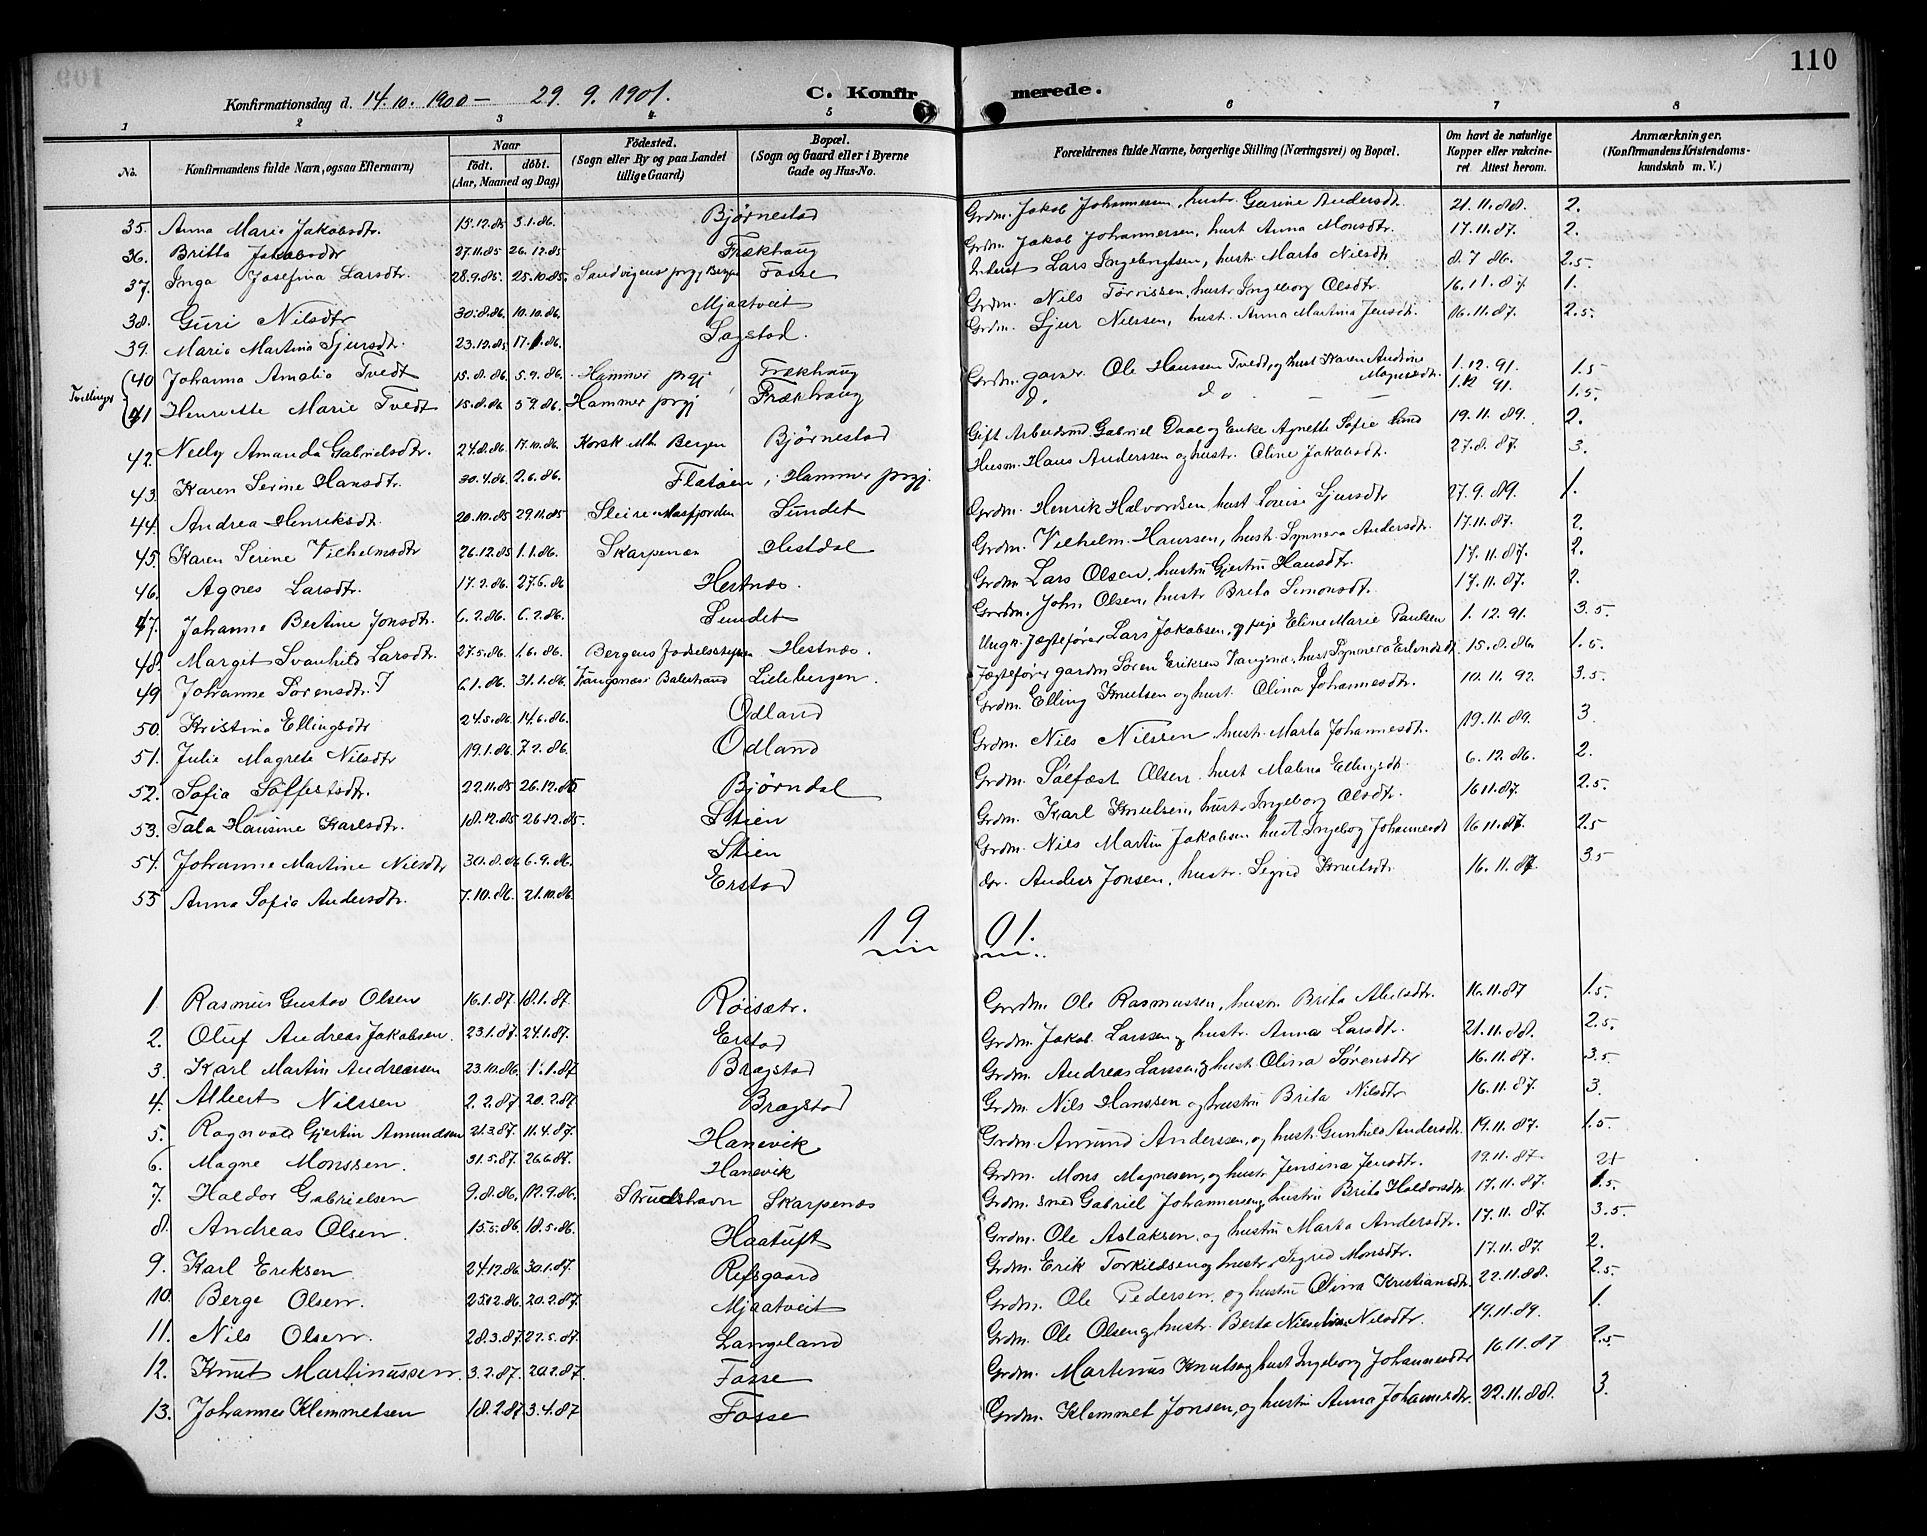 110
Konfirmationsdag d. 14.10.1900 – 29.9.1901.
C. Konfirmerede.
1 2 3 4 5 6 7 8
No. Konfirmandens fulde Navn, ogsaa Efternavn) Naar født. døbt. (Aar, Maaned og Dag) Fødested. (Sogn eller By og paa Landet tillige Gaard) Bopæl. (Sogn og Gaard eller i Byerne Gade og Hus-No. Forældrenes fulde Navne, borgerlige Stilling (Næringsvei) og Bopæl. Om havt de naturlige Kopper eller vakcineret. Attest herom. Anmærkninger. (Konfirmandens Kristendomskundskab m. V.)
35. Anna Marie Jakobsdtr. 15.12.85 3.1.86. Bjørnestad Grdm. Jakob Johannessen, hustr. Gurine Andersdt. 21.11.88. 2.
36. Britta Jakobsdtr 27.11.85 26.12.85 Frækhaug Grdm. Jakob Johannessen, hust Anna Monsdtr. 17.11.87. 2.
37. Inga Josefina Larsdtr. 28.9.85. 25.10.85. Sandvigens prgj Bergen Fosse Inderst Lars Ingebrigtsen, hustr. Marta Nilsdt. 8.7 86. 2.5.
38. Guri Nilsdtr 30.8.86. 10.10.86. Mjaatveit Grdm. Nils Torrissen, hustr Ingeborg Olsdtr. 16.11.87. 1.
39. Marie Martina Sjursdtr. 23.12.85 17.1.86. Sagstad. Grdm. Sjur Nilssen, hust. Anna Martina Jensdt. 16.11.87. 2.5.
Tvillinger
40 Johanna Amalia Tvedt 15.8.86. 5.9.86. Hammer prgj Frækhaug Grdm. Ole Hanssen Tvedt, og hust Karen Andrine Magnusdtr. 1.12.91. 1.5
41 Henriette Marie Tvedt 15.8.86 5.9.86. Hammer prgj Frækhaug Do. do – – 1.12 91. 1.5.
42. Nelly Amanda Gabrielsdtr. 24.8.86. 17.10.86. Korsk. Mh. Bergen Bjørnestad Gift Arbeidsmd. Gabriel Daae og Enke Agnette Sofie Lund 19.11.89. 2.
43. Karen Serine Hansdt. 30.4.86. 2.6.86. Flatøen, Hammer prgj. Husm. Hans Anderssen og hustr. Oline Jakobsdt. 27.8.87. 3.
44. Andrea Henriksdt. 20.10.85 29.11.85 Sleire Masfjorden Sundet Grdm. Henrik Halvordsen hust Lovise Sjursdtr 27.9.89. 1.
45. Karen Serine Vilhelmsdtr 26.12.85 1.1.86. Skarpenæs Hestdal Grdm. Vilhelm Hanssen, hust. Synnøva Andersdt. 17.11.87. 2.
46. Agnes Larsdtr. 17.2.86. 27.6.86 Hestnæs. Grdm. Lars Olsen, hustru Gjertru Hansdtr. 17.11.87. 2.
47. Johanne Bertine Jonsdtr. 6.2.86. 6.2.86. Sundet Grdm. John Olsen, hustr Brita Simonsdt. 17.11.87. 2.
48. Margit Svanhild Larsdtr. 27.5.86. 1.6.86. Bergens Fødselsstiftelsen Hestnæs. Ungk. Jægtefører Lars Jakobsen, og pige Eline Marie Paulsen 1.12.91. 3.5
49 Johanne Sørensdtr. 6.1.86. 31.1.86. Vangsnæs Balestrand Lillebergen. Jægtefører gardm Søren Eriksen Vangsnæs, hust Synnøva Erlendsdt 15.8.86 1.5.
50. Kristina Ellingsdtr 24.5.86. 14.6.86. Odland Grdm. Elling Knutsen og hust. Olina Johannesdtr. 10.11.92. 3.5.
51. Julie Magrete Nilsdtr 19.1.86. 7.2.86. Odland Grdm. Nils Nilssen hust. Marta Johannesdt. 19.11.89. 3.
52. Sofia Solfestsdtr. 22.11.85 26.12.85 Bjørndal Grdm. Solfæst Olsen hust Malena Ellingsdt. 6.12.86. 2.
53. Tala Hansine Karlsdtr. 18.12.85 26.12.85. Stien Grdm. Karl Knutsen, hust. Ingeborg Olsdtr. 16.11.87. 2.5.
54. Johanne Martine Nilsdtr 30.8.86 6.9.86. Stien Grdm. Nils Martin Jakobsen hust Ingeborg Johannesdt 16.11.87. 2.5
55 Anna Sofia Andersdtr. 7.10.86. 21.10.86. Erstad do. Anders Jonsen, hustr. Sigrid Knutsdtr. 16.11.87 3.5
1901.
1 Rasmus Gustav Olsen 16.1.87. 18.1.87. Røisætr. Grdm. Ole Rasmussen, hustr. Brita Abelsdtr. 16.11.87 1.5.
2. Oluf Andreas Jakobsen. 23.1.87. 24.1.87. Erstad Grdm. Jakob Larssen og hustr. Anna Larsdtr. 21.11.88. 2.5.
3. Karl Martin Andreassen 23.10.86. 1.1.87 Bragstad Grdm. Andreas Larssen og hust. Olina Sørensdtr 16.11.87. 3.5
4. Albert Nilssen 2.2.87. 20.2.87 Bragstad Grdm. Nils Hanssen og hustru Brita Nilsdtr 16.11.87. 3.
5. Ragnvald Gjertin Amundsen 21.3.87. 11.4.87. Hanevik Grdm. Amund Anderssen, og hust. Gunhild Andersdt. 19.11.87. 1.5.
6. Magne Monssen. 31.5.87. 26.6.87. Hanevik Grdm. Mons Magnesen, og hustr. Jensina Jensdtr. 19.11.87. 2+
7. Haldor Gabrielsen 9.8.86. 12.9.86. Strudshavn Skarpenæs Grdm. smed Gabriel Johannessen og hustru Brita Haldorsdt. 17.11.87. 1.5.
8. Andreas Olsen. 15.5.86. 18.5.86. Haatuft Grdm. Ole Aslaksen. og hustru Marta Andersdtr. 17.11.87. 3.5.
9. Karl Eriksen 24.12.86. 30.1.87. Refsgaard Grdm. Erik Torkildsen og hustr. Sigrid Monsdtr. 17.11.87. 2.
10. Berge Olsen. 25.12.86. 20.2.87. Mjaatveit Grdm. Ole Pedersen. og hustru Olina Kristiansdt. 22.11.88. 2.5.
11. Nils Olsen. 28.3.87. 22.5.87. Langeland Grdm. Ole Olsen og hustr. Berta Nilsdtr. 19.11.89. 1.
12. Knut Martinussen. 3.2.87. 20.2.87. Fosse Grdm. Martinus Knutsen og hust Ingeborg Johannesdtr 16.11.87 2.5
13. Johannes Klemmetsen 18.2.87 3.4.87 Fosse Grdm. Klemmet Jonsen, og hustru Anna Johannesdtr. 22.11.88. 3.